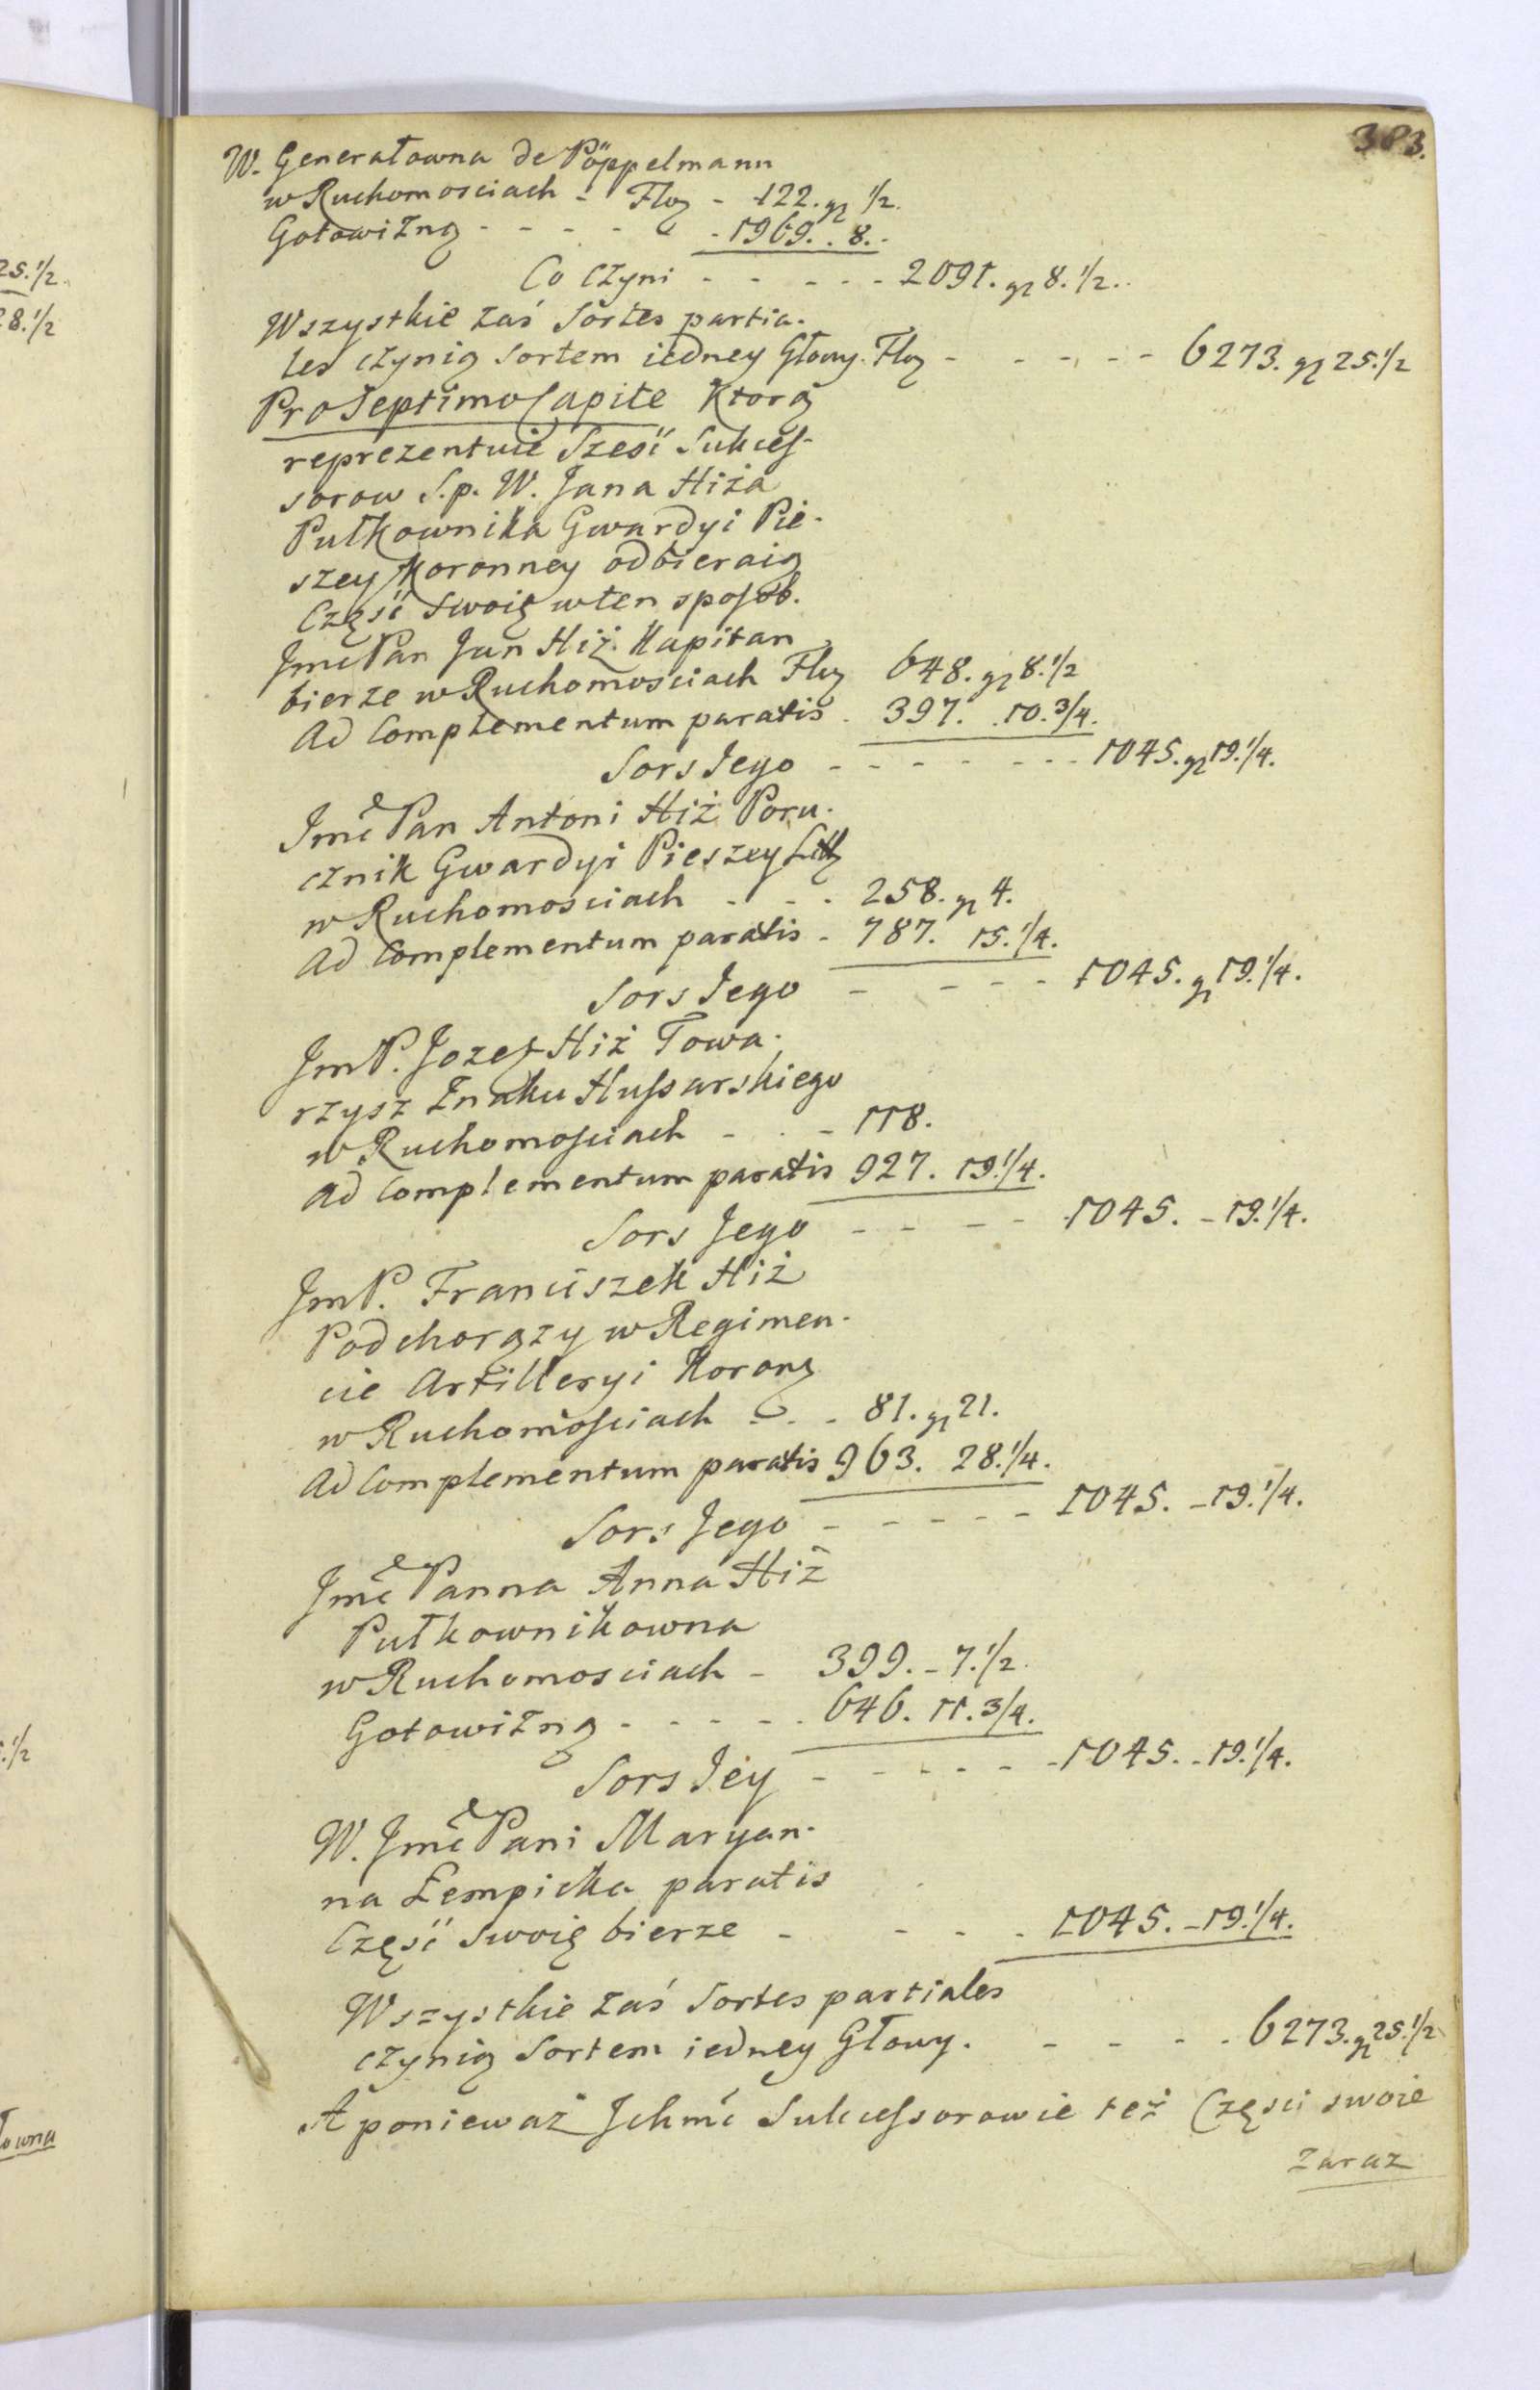 383.
W. Generałowna de Pöppelmann
w Ruchomosciach - Flor - 122. gr 1/2.
Gotowizną - - - - - 1969. . 8. -
Co czyni - - - - - 2091. gr 8. 1/2.
Wszystkie zaś Sortes partia-
les czynią sortem iedney Głowy. Flor - - - - - 6273. gr 25. 1/2
Pro Septimo Capite Ktorą
reprezentuie Sześć Sukcess-
sorow S. p. W. Jana Hiża
Pułkownika Gwardyi Pie-
szey Koronney odbieraią
Część swoię w ten sposob.
Jmć Pan Jan Hiż. Kapitan
bierze w Ruchomosciach Flor 648. gr 8. 1/2
Ad Complementum paratis . 397. . 10. 3/4.
Sors Jego - - - - - - - 1045. gr 19. 1/4.
Jmć Pan Antoni Hiż Poru-
cznik Gwardyi Pieszey Litt
w Ruchomosciach - - . 258. gr 4.
Ad Complementum paratis - 787. 15. 1/4.
Sors Jego - - - - 1045. gr 19. 1/4.
Jm P. Jozef Hiż Towa-
rzysz Znaku Hussarskiego
w Ruchomosciach - . - 118.
Ad Complementum paratis 927. 19. 1/4.
Sors Jego - - - - 1045. - 19. 1/4.
Jm P. Franciszek Hiż
Podchorązy w Regimen-
cie Artilleryi Koron
w Ruchomosciach - . - 81. gr 21.
Ad Complementum paratis 963. 28. 1/4.
Sors Jego - - - - - 1045. - 19. 1/4.
Jmć Panna Anna Hiż
Pułkownikowna
w Ruchomosciach - 399. - 7. 1/2.
Gotowizną - - - - - 646. 11. 3/4.
Sors Jey - - - - - - 1045. - 19. 1/4.
W. Jmć Pani Maryan-
na Łempicka paratis
Część swoię bierze - - - - 1045. - 19. 1/4.
Wszystkie zaś Sortes partiales
czynią Sortem iedney Głowy. - - - - 6273. gr 25. 1/2
A ponieważ Jchmć Sukcessorowie też Części swoie
zaraz
25. 1/2
28. 1/2
. 1/2
łowna